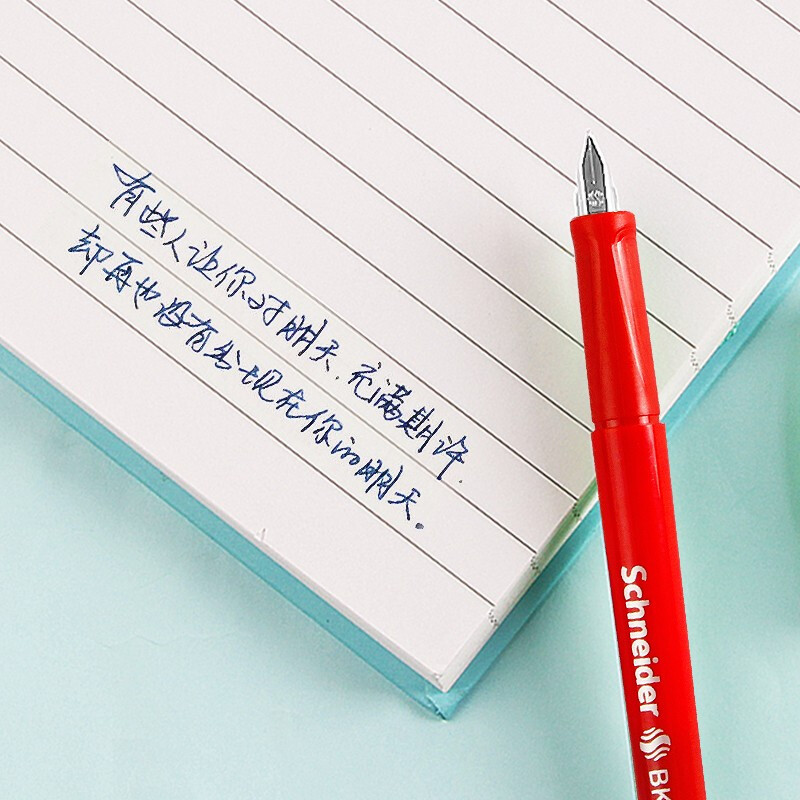 有些人让你对明天.充满期许.
却再也没有出现在你的明天。
Schneider BK